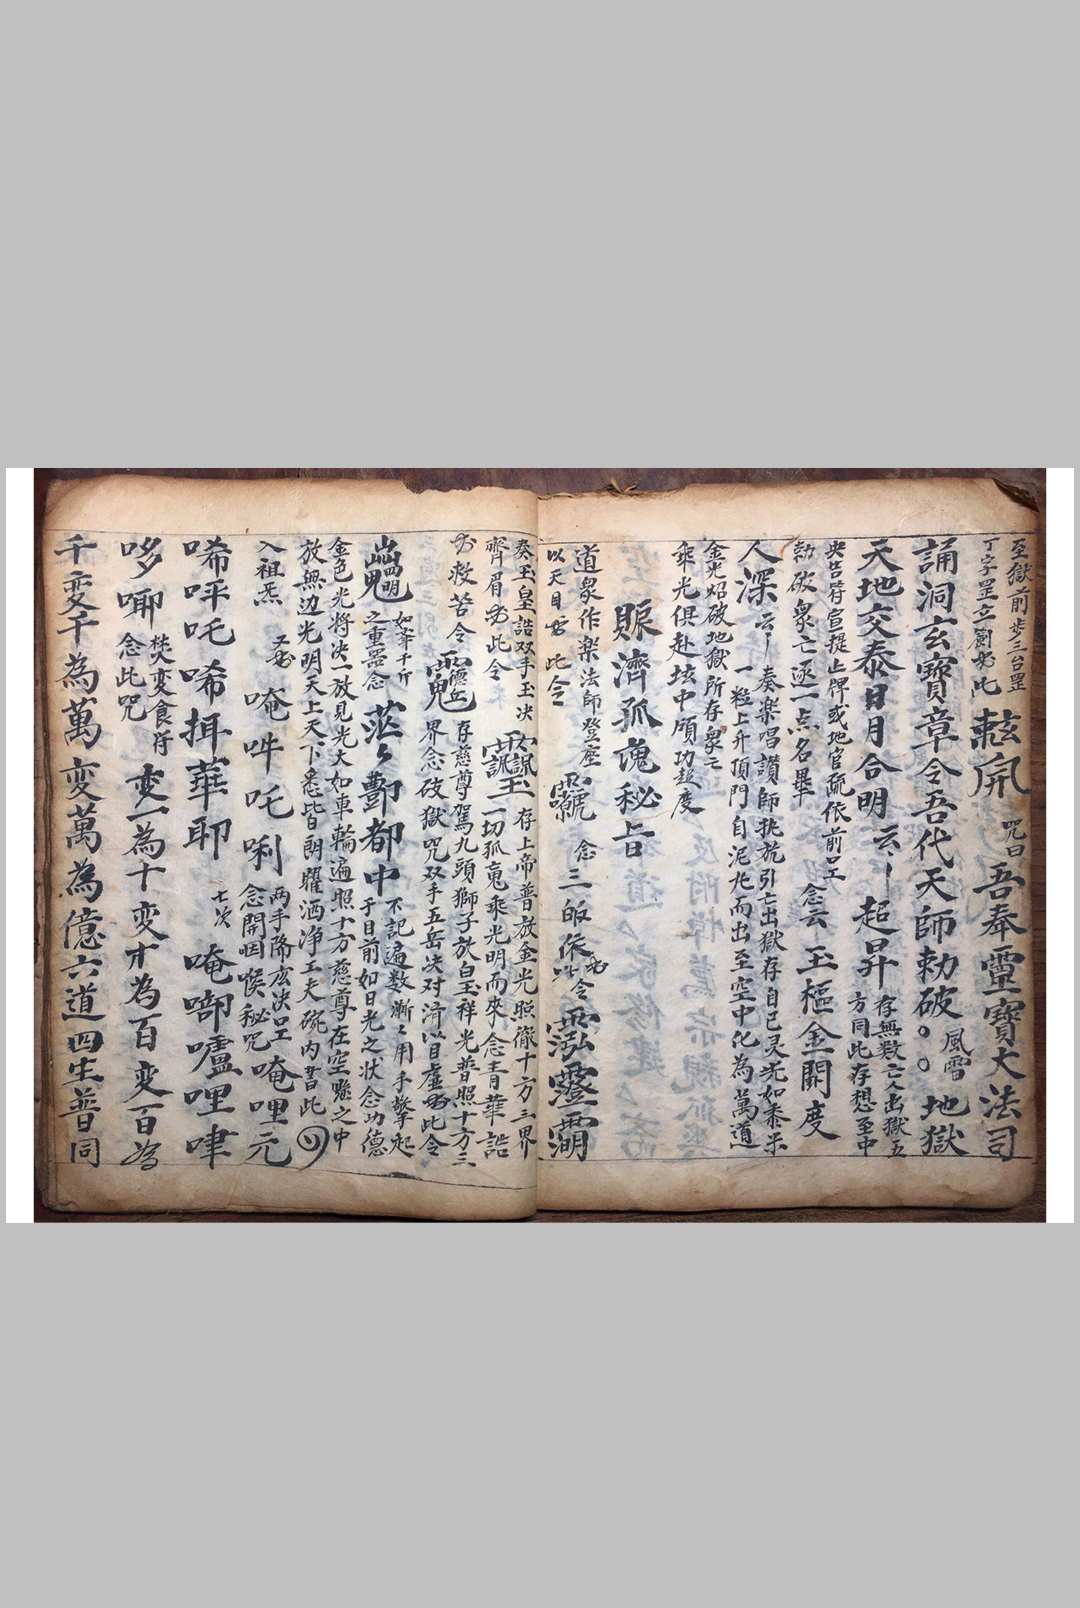 至獄前步三台罡
丁字罡立劄 此 咒曰 吾奉靈寶大法司
誦洞玄寶章令吾代天師勅破。 風雷 。地獄
天地交泰日月合明云〻 起昇 存無數亡人出獄五
方同此存想至中
央告符宣提止牌或地官疏依前呈 念云 玉樞金闕度
劾破眾亡逐一点名畢
人深云〻 奏樂唱讚師執旂引亡出獄存自己灵光如黍米
一粒上升頂門自泥丸而出至空中化為萬道
金光炤破地獄所存眾亡
乘光俱赴垓中 功超度
賑濟孤魂秘旨
道眾作樂法師登座 念 三 令
以天目 此令
癸玉皇誥双手玉决 存上帝普放金光照徹十方三界
齊眉 此令 一切孤魂乘光明而來念青華誥
救苦令 存慈尊駕九頭獅子放白玉祥光普照十方三
界念破獄咒双手五岳决对 目虛 此令
如華千斤
之重 念 茫〻酆都中 不記遍数漸〻用手擎起
于日前如日光之狀念功德
金色光将决一放見光大如車輪遍照十方慈尊在空 之中
放無边光明天上天下悉皆朗耀洒净工夫碗内書此
入祖炁 唵吽吒唎 两手 决呈
念開咽喉秘咒 唵哩元
唏呼吒唏揖華耶 七次 唵 嚧哩
哆唧 焚变食符
念此咒 变一為十变十為百变百為
千变千為萬变萬為億六道四生普同